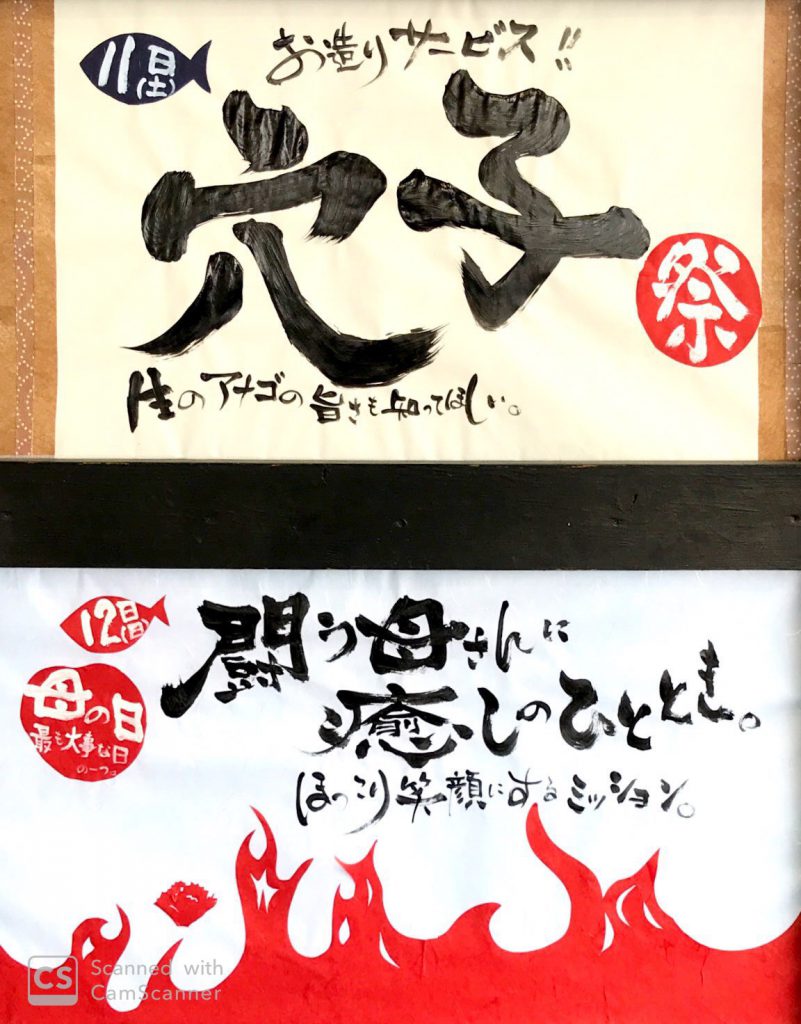 11日(土)
お造りサービス!!
穴子
祭
生のアナゴの旨さも知ってほしい。
12日(日)
母の日
最も大事な日
の一つ
闘う母さんに
癒しのひととき。
ほっこり笑顔にするミッション。
CS Scanned with
CamScanner